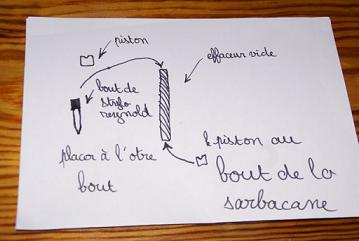 piston
effaceur vide
bout de
stylo
reynold
placer à l'otre
bout
le piston au
bout de la
sarbacane